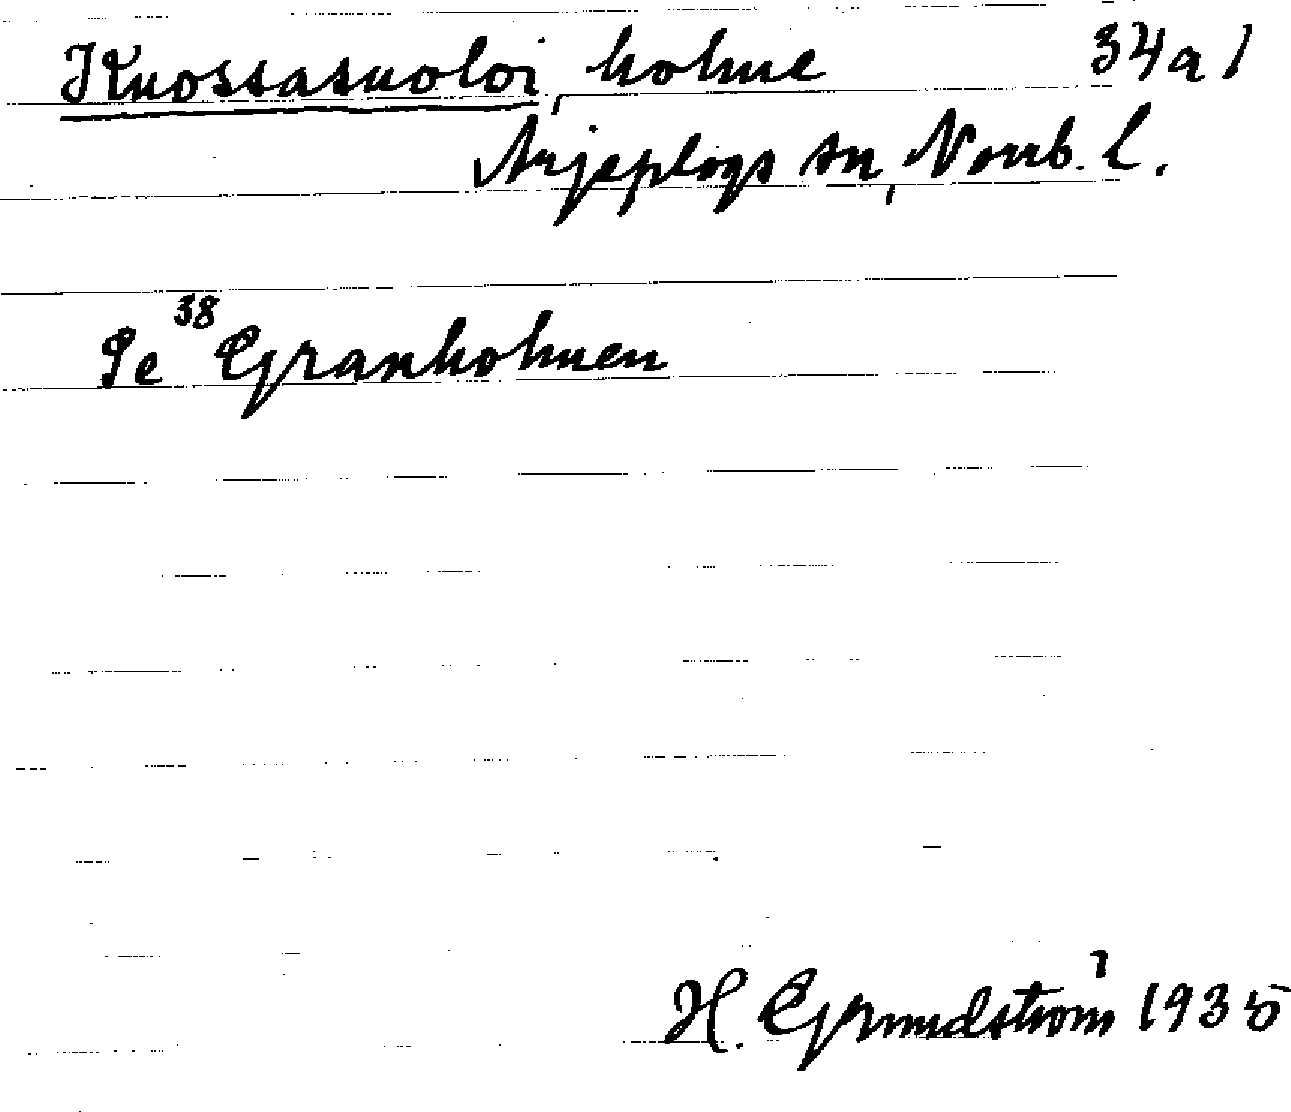 Kuossasuoloi, holme 34a1
Arjeplogs sn, Norrb. l.
Se 38 Granholmen
H. Grundström 1935